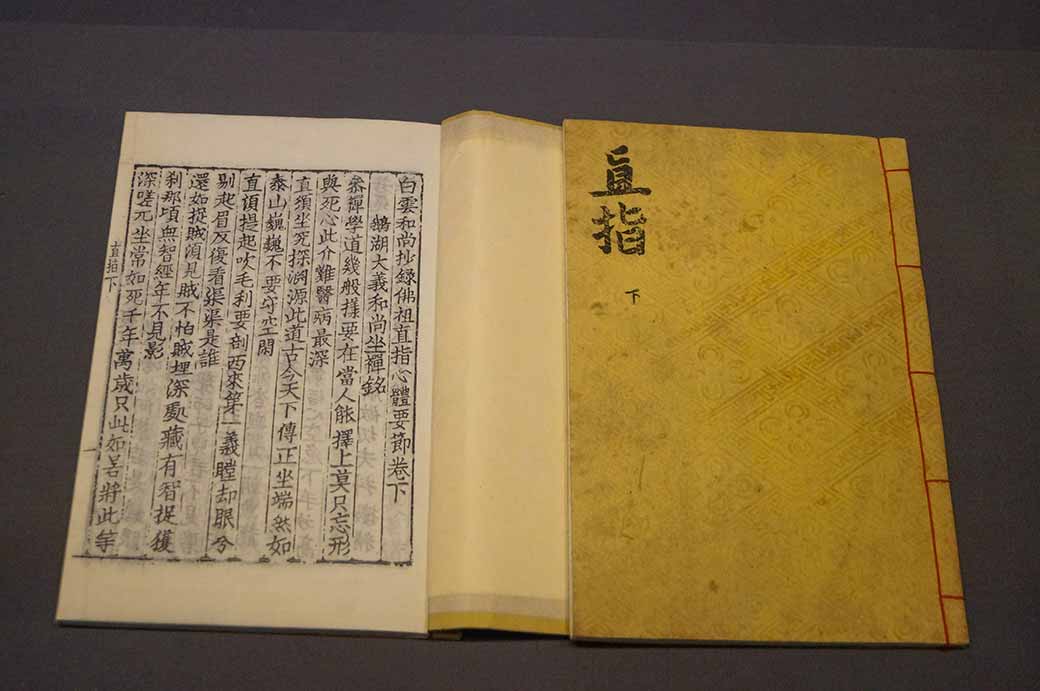 白雲和尚抄錄佛祖直指心體要節卷下
鵝湖大義和尚坐禪銘
叅禪學道幾般樣要在當人能擇上莫只忘形
與死心此介難醫病最深
直須坐究探淵源此道古今天下傳正坐端然如
泰山巍巍不要守空閑
直須提起吹毛利要剖西來第一義瞠却眼兮
剔起眉反覆看渠渠是誰
還如捉賊須見賊不怕賊埋深處藏有智捉獲
刹那頃無智經年不見影
深嗟兀坐常如死千年萬歲只此如若將此等
直指下
一
直指
下